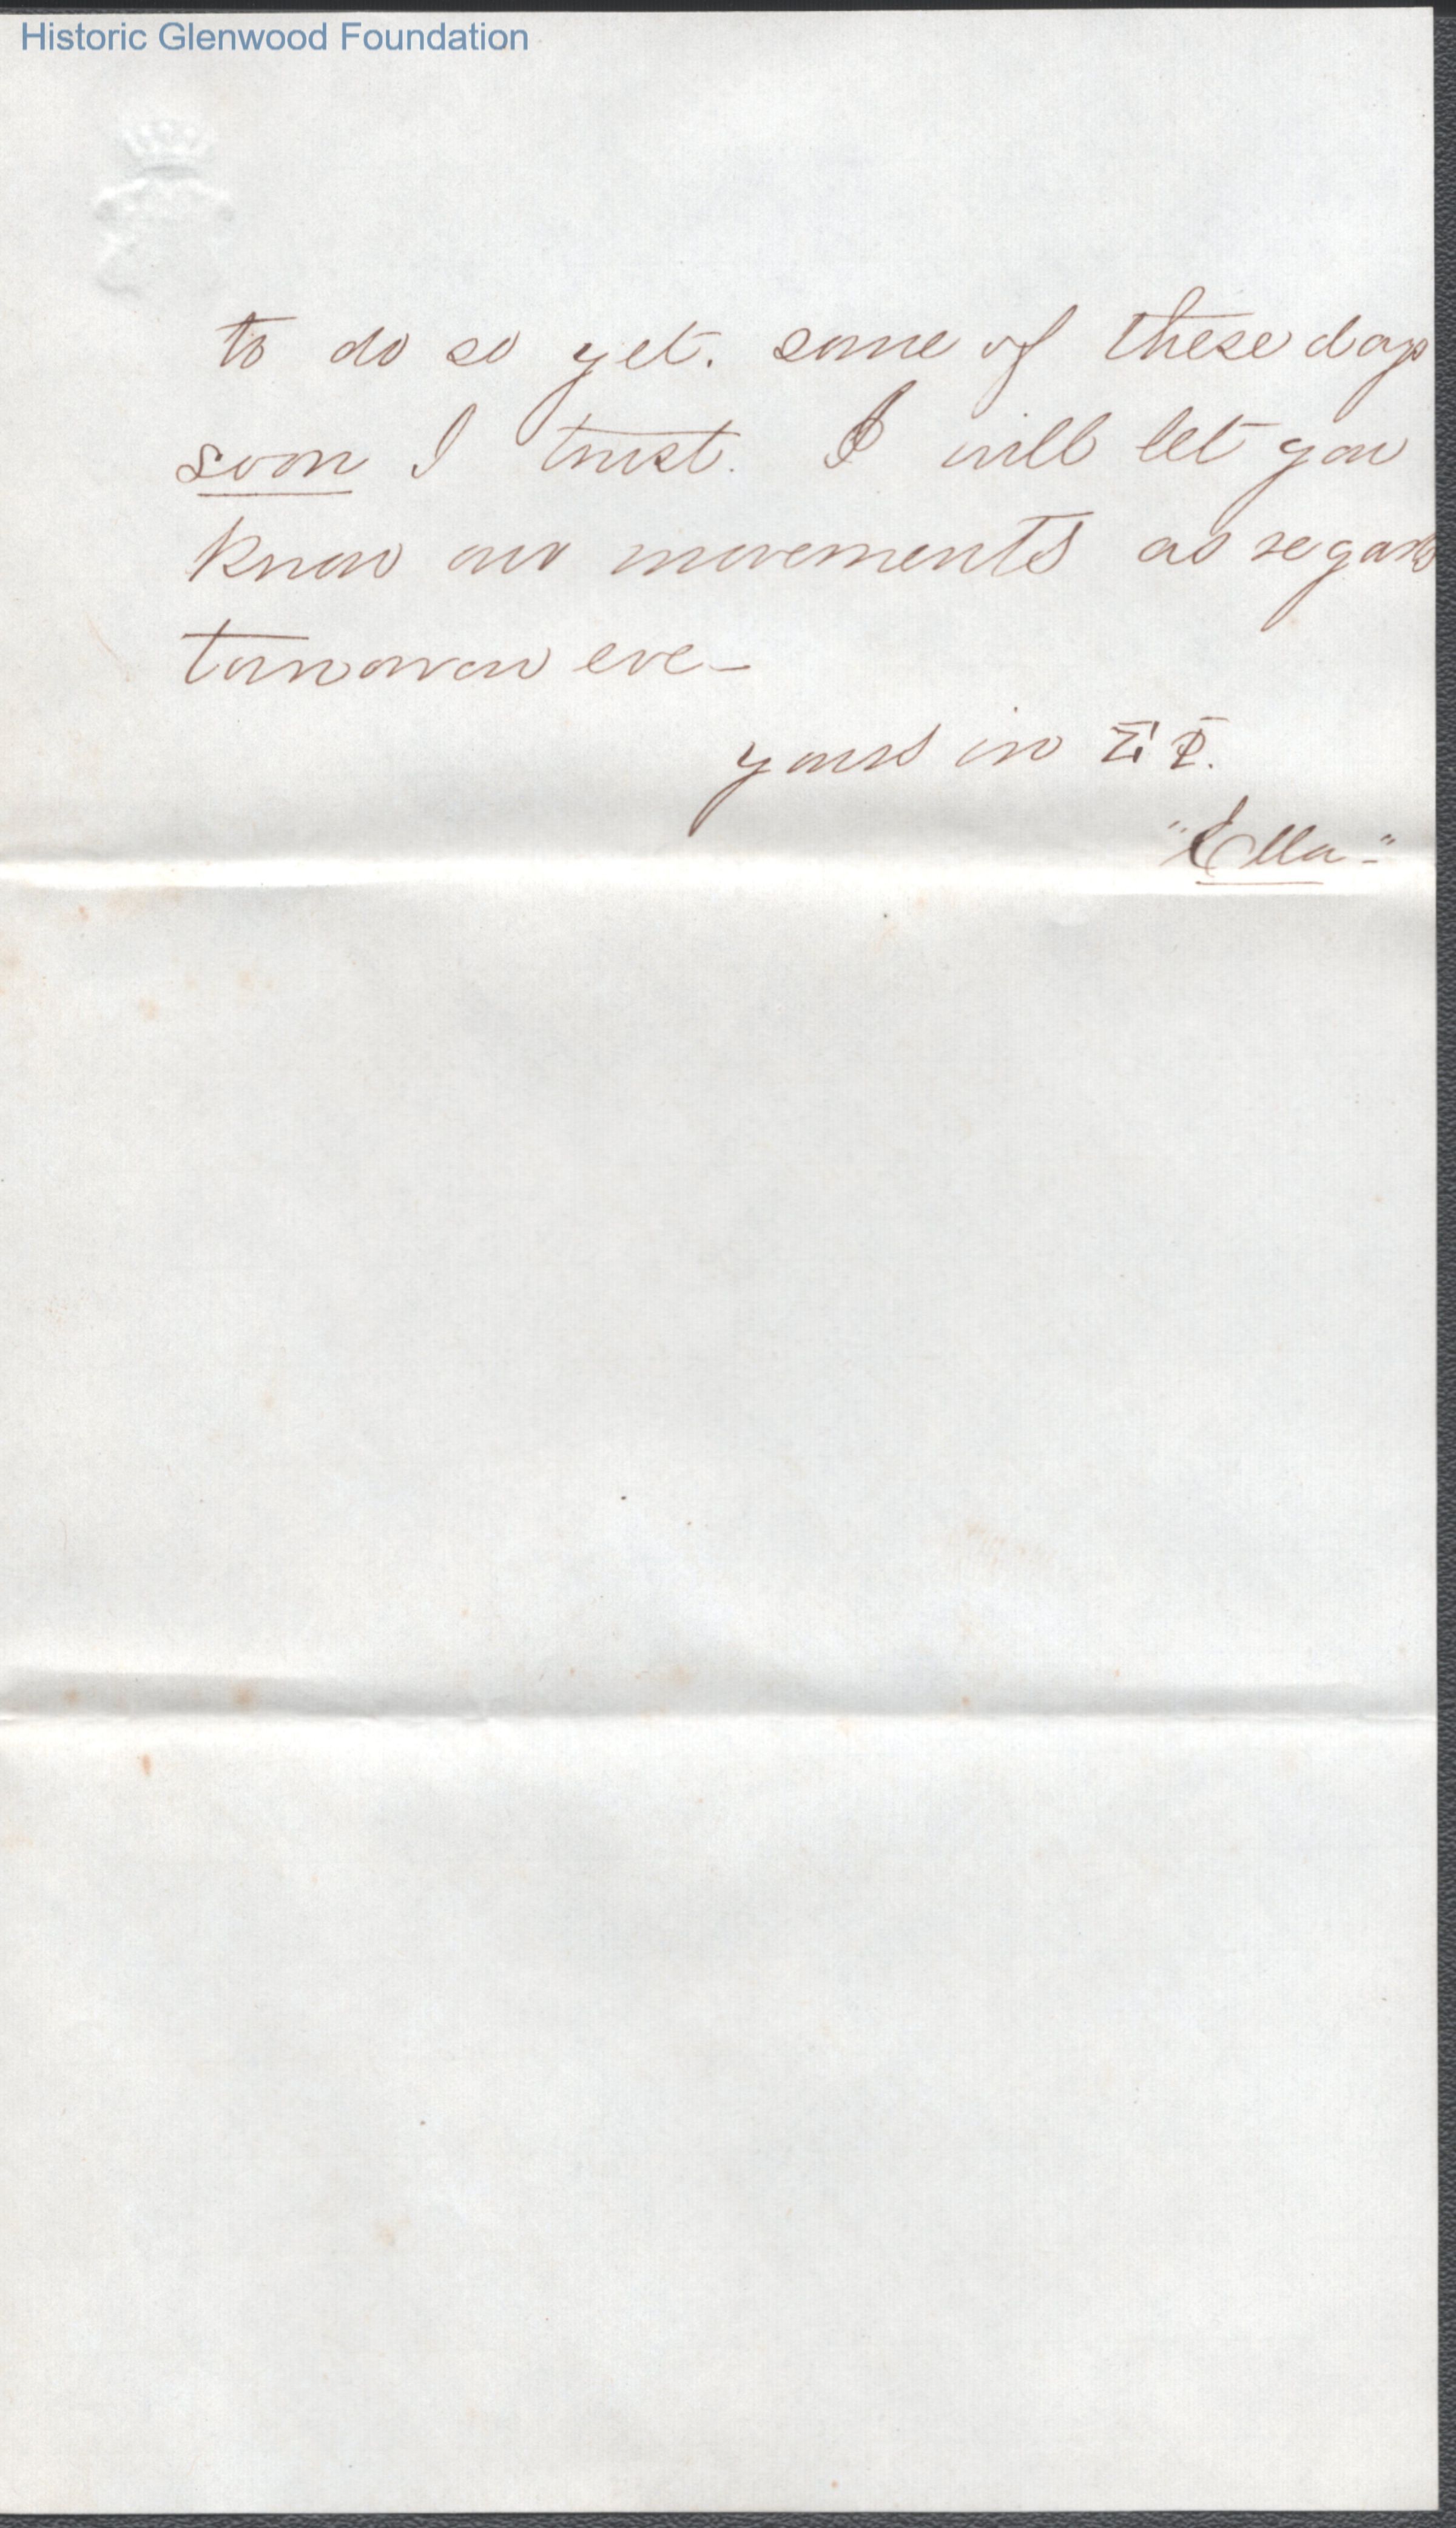 Historic Glenwood Foundation
to do so yet. some of these days
soon I trust. I will let you
know our movements as regards
tomorrow eve_
yours in
"Ella"